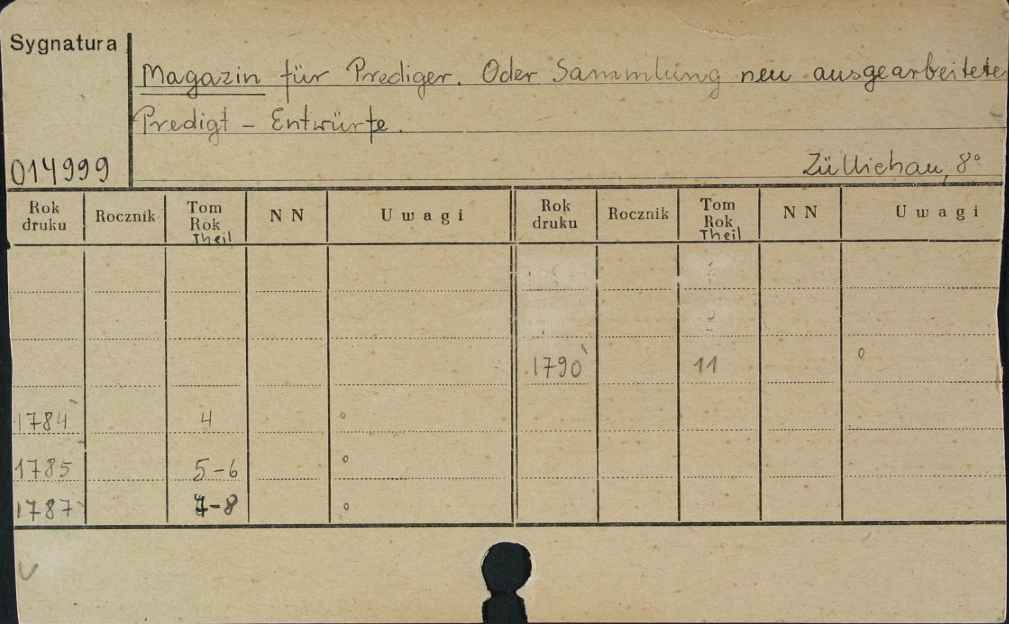 Sygnatura
Magazin für Prediger. Oder Sammlung neu ausgearbeiteter
Predigt - Entwürfe.
014999
Züllichau, 8°
Rok druku Rocznik Tom Rok Theil NN Uwagi Rok druku Rocznik Tom Rok Theil NN Uwagi
1790 11 o
1784 4 o
1785 5-6 o
1787 7-8 o